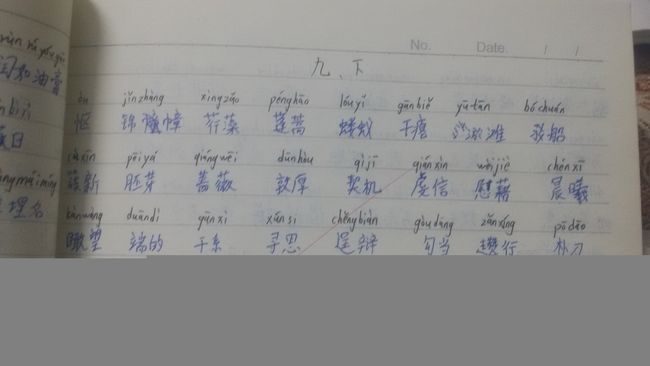 No. Date. / /
九、下
jǐn zhàng xìng zǎo péng hāo lóu yǐ gān biě yū tān bó chuán
怄 锦幛 荇藻 蓬蒿 蝼蚁 干瘪 淤滩 驳船
cái xīn pēi yá qiáng wēi dūn hòu qì jī qián xìn wèi jiè chén xī
簇新 胚芽 蔷薇 敦厚 契机 虔信 慰藉 晨曦
kàn wàng duān dì gān xì xún si chěng biàn gòu dàng zǎn xíng pō dāo
瞰望 端的 干系 寻思 逞辩 勾当 趱行 朴刀
闰如油膏
日
理名